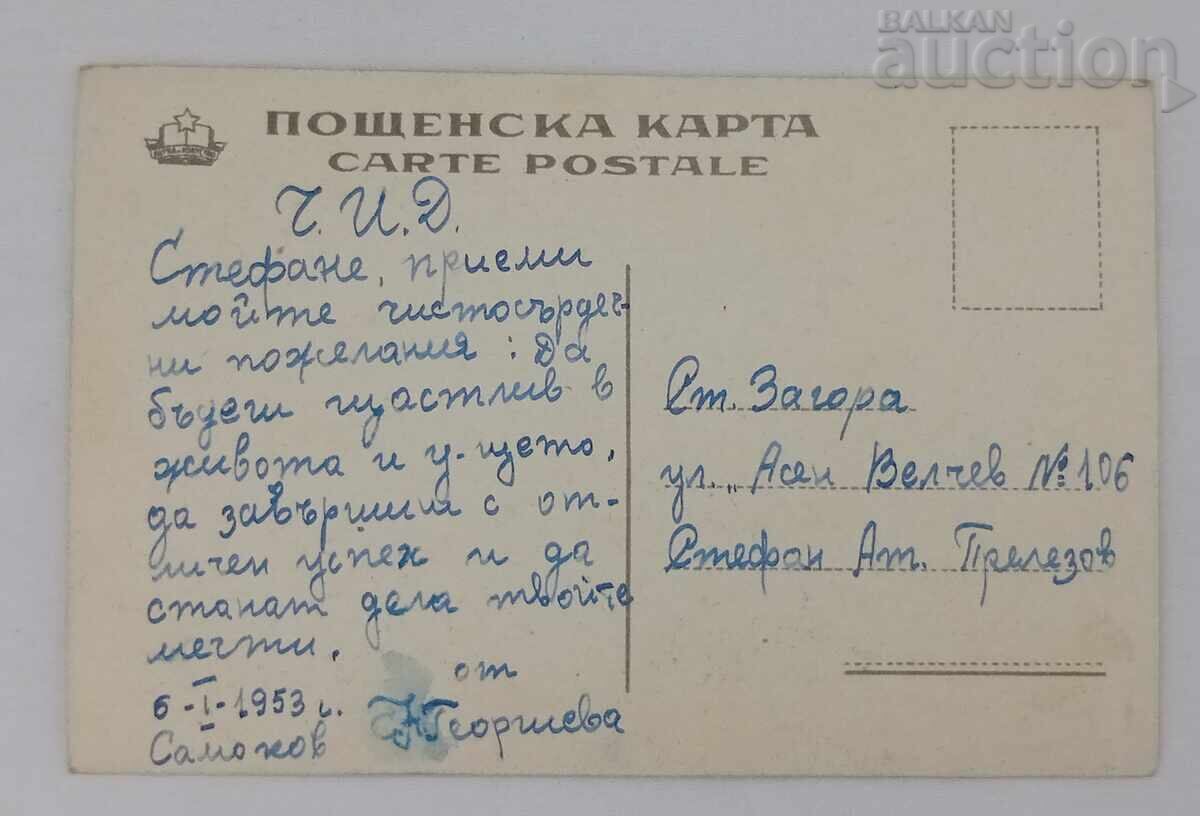 BALKAN
auction
ПОЩЕНСКА КАРТА
CARTE POSTALE
Ч.И.Д.
Стефане, приеми
мойте чистосърдеч-
ни пожелания: Да
бъдеш щастлив в
живота и у-щето,
да завършиш с от-
личен успех и да
станат дела твойте
мечти.
от
6-I-1953 г.
Н Георгиева
Самоков
Ст. Загора
ул. „Асен Велчев №106
Стефан Ат. Прелезов